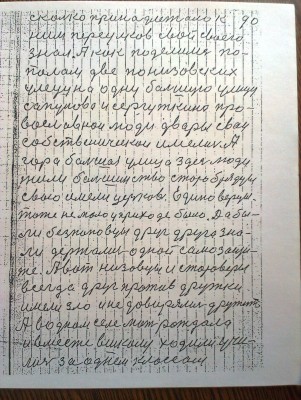 сколко принадлежало к 90
ним переулков свой своего
знал. А как поделили по-
палам две понизовских
улецу на одну балшую улицу
сапунова и сергушкино про-
вославной люди двары сваи
собственически имелик. А
гора балшая улица здес люди
жили балшинство старобрядцы
свою имели церков. Единоверцы.
тоже немного приходе было. Да бы-
ли безпаповцы друг друга зна-
ли держали одной самозащи-
те. А вот низовцы и староверы
всегда друг против дружки
имели зло и не доверяли друг
А водном селе мат рождала
и вместе в школу ходили учи-
лис за одним классом